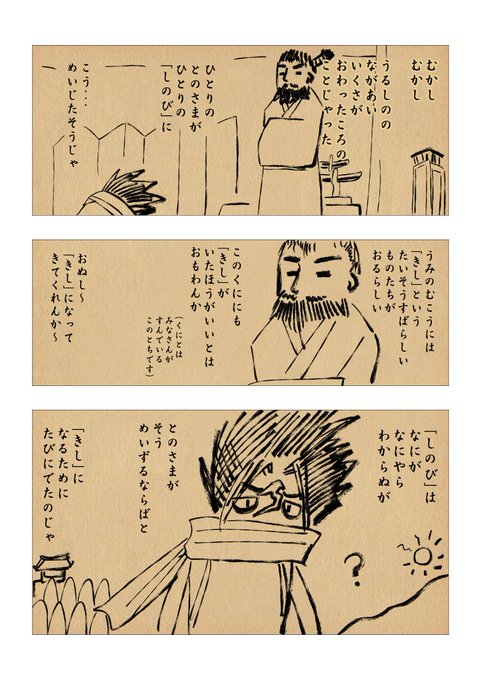 むかし
むかし
うるしのの
ながあい
いくさが
おわったころの
ことじゃった
ひとりの
とのさまが
ひとりの
「しのび」に
こう・・・
めいじたそうじゃ
うみのむこうには
「きし」という
たいそうすばらしい
ものたちが
おるらしい
このくににも
「きし」が
いたほうがいいとは
おもわんか
（くにとは
みなさんが
すんでいる
このとちです）
おぬし〜
「きし」になって
きてくれんか〜
「しのび」は
なにが
なにやら
わからぬが
?
とのさまが
そう
めいずるならばと
「きし」に
なるために
たびにでたのじゃ